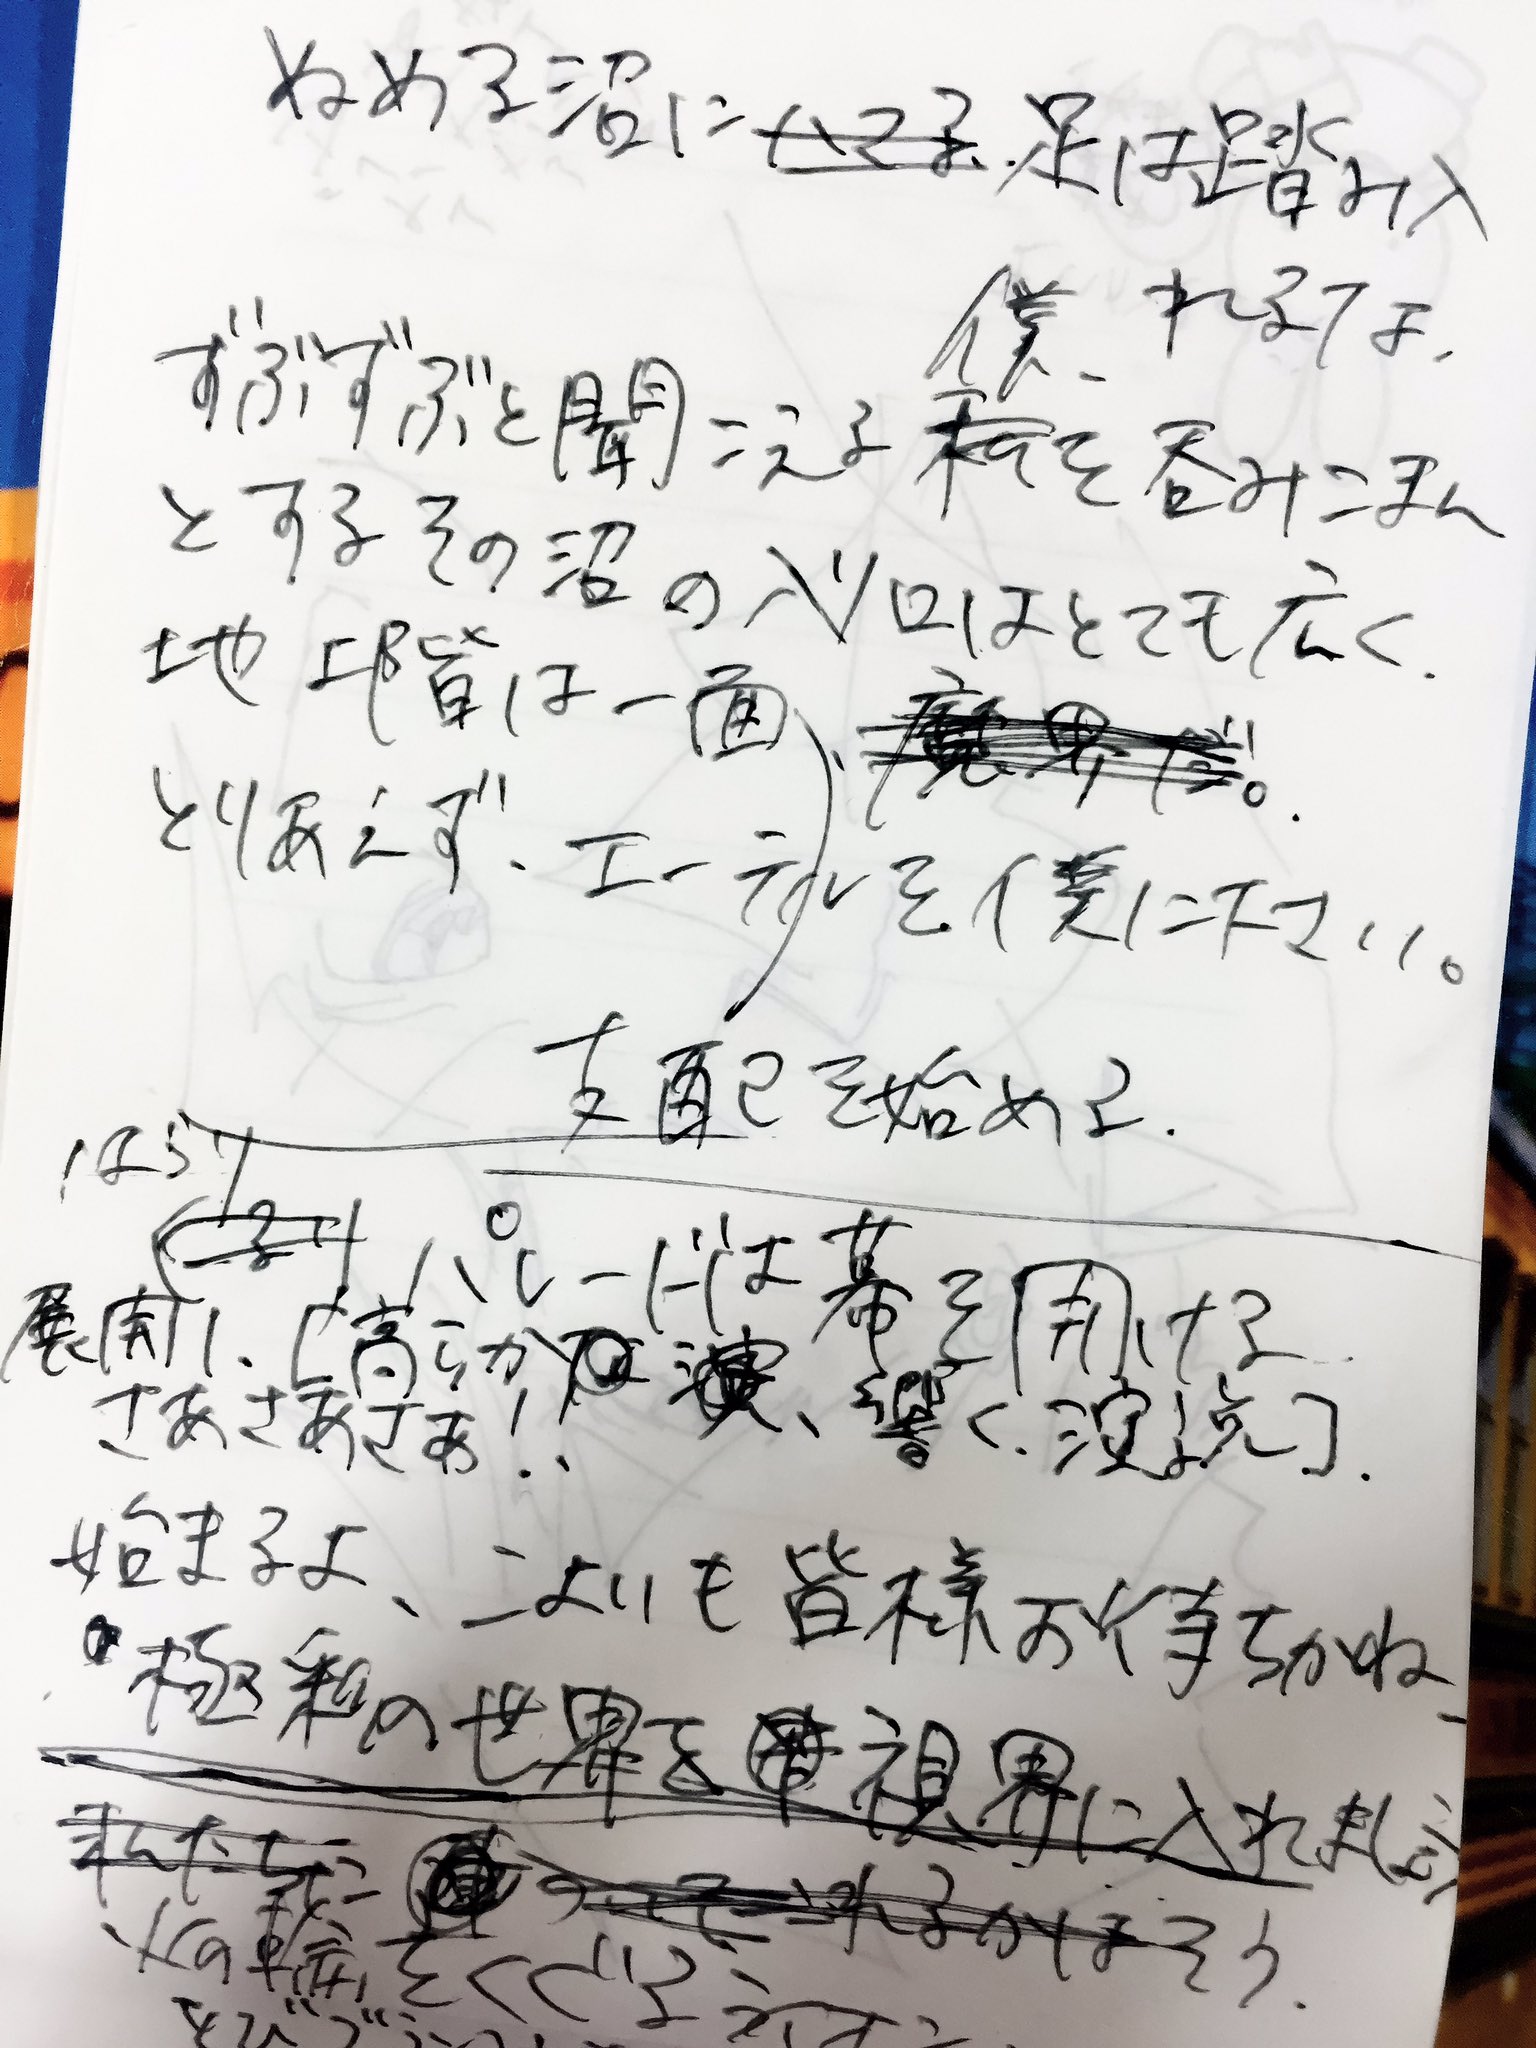 ぬめる沼に 足は踏み入
れるなよ、
僕
ずぶずぶと聞こえる 私を呑みこまん
とするその沼の入り口はとても広く、
地下階は一面、魔界だ。
とりあえず、エーテルを僕に下さい。
支配を始める。
ほら
パレードは幕を開ける
展開し、「高らかに 演、響く、演説」。
さあさあさあ!!
始まるよ、こよいも皆様お待ちかね
極彩の世界を 視界に入れましょう
私たちに
火の輪をくぐる